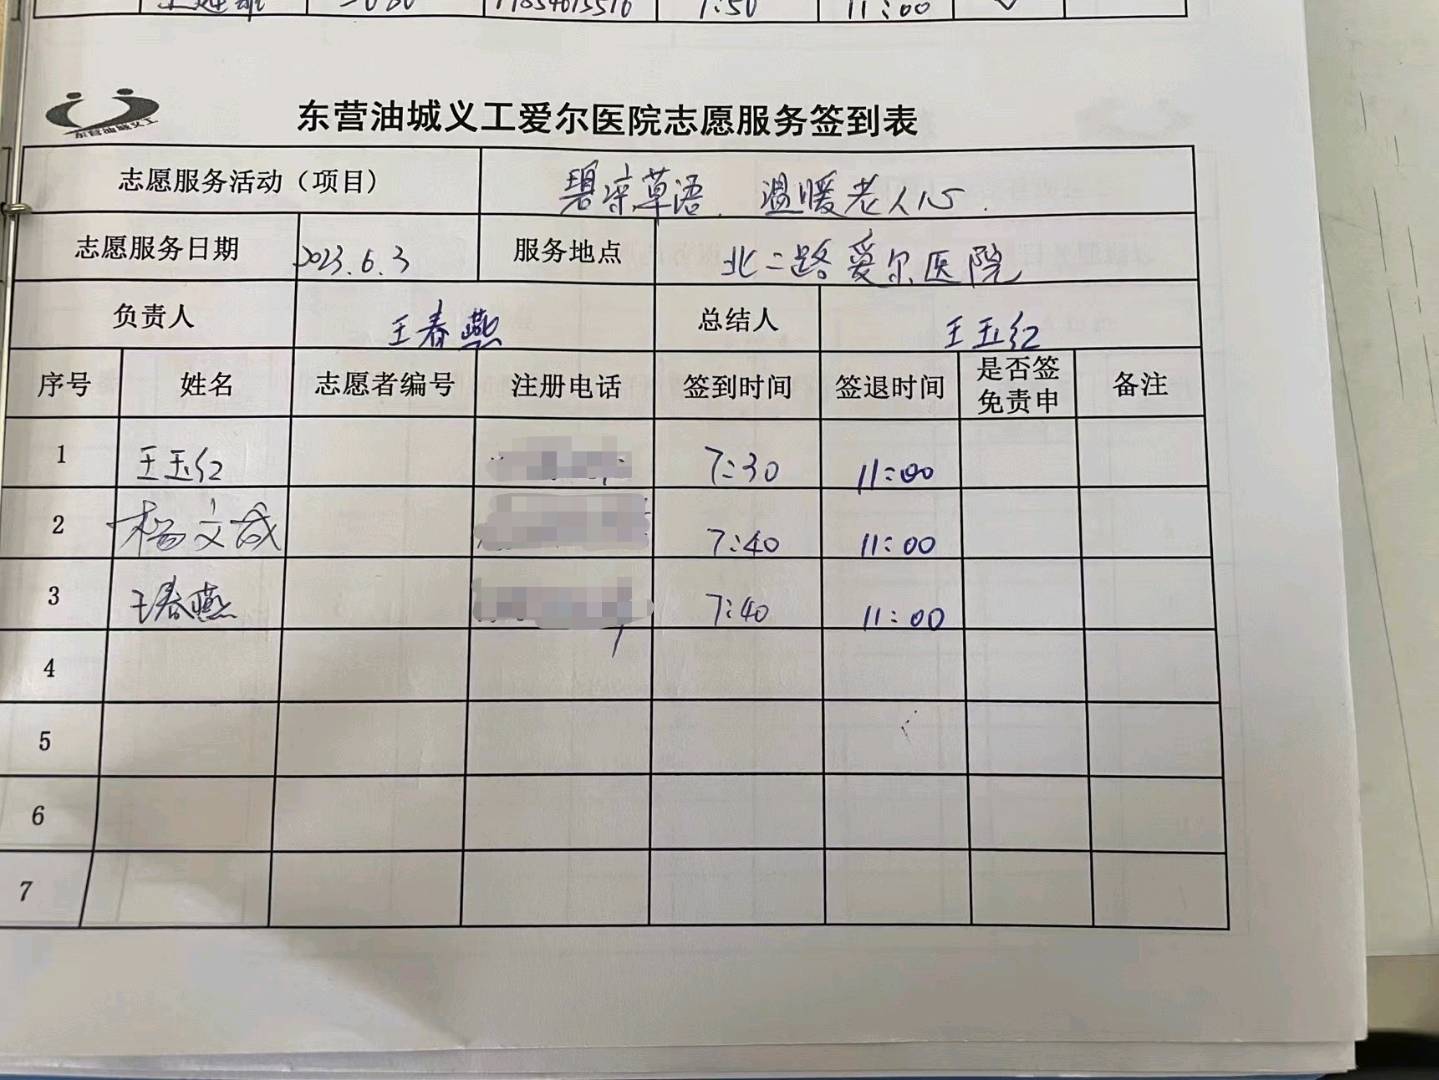 1:50 11:00
东营油城义工
东营油城义工爱尔医院志愿服务签到表
志愿服务活动（项目） 草语 温暖老人心.
志愿服务日期 2023.6.3 服务地点 北二路爱尔医院
负责人 王春燕 总结人 王玉红
序号 姓名 志愿者编号 注册电话 签到时间 签退时间 是否签免责申 备注
1 王玉红 7:30 11:00
2 杨文成 7:40 11:00
3 王春燕 7:40 11:00
4
5
6
7